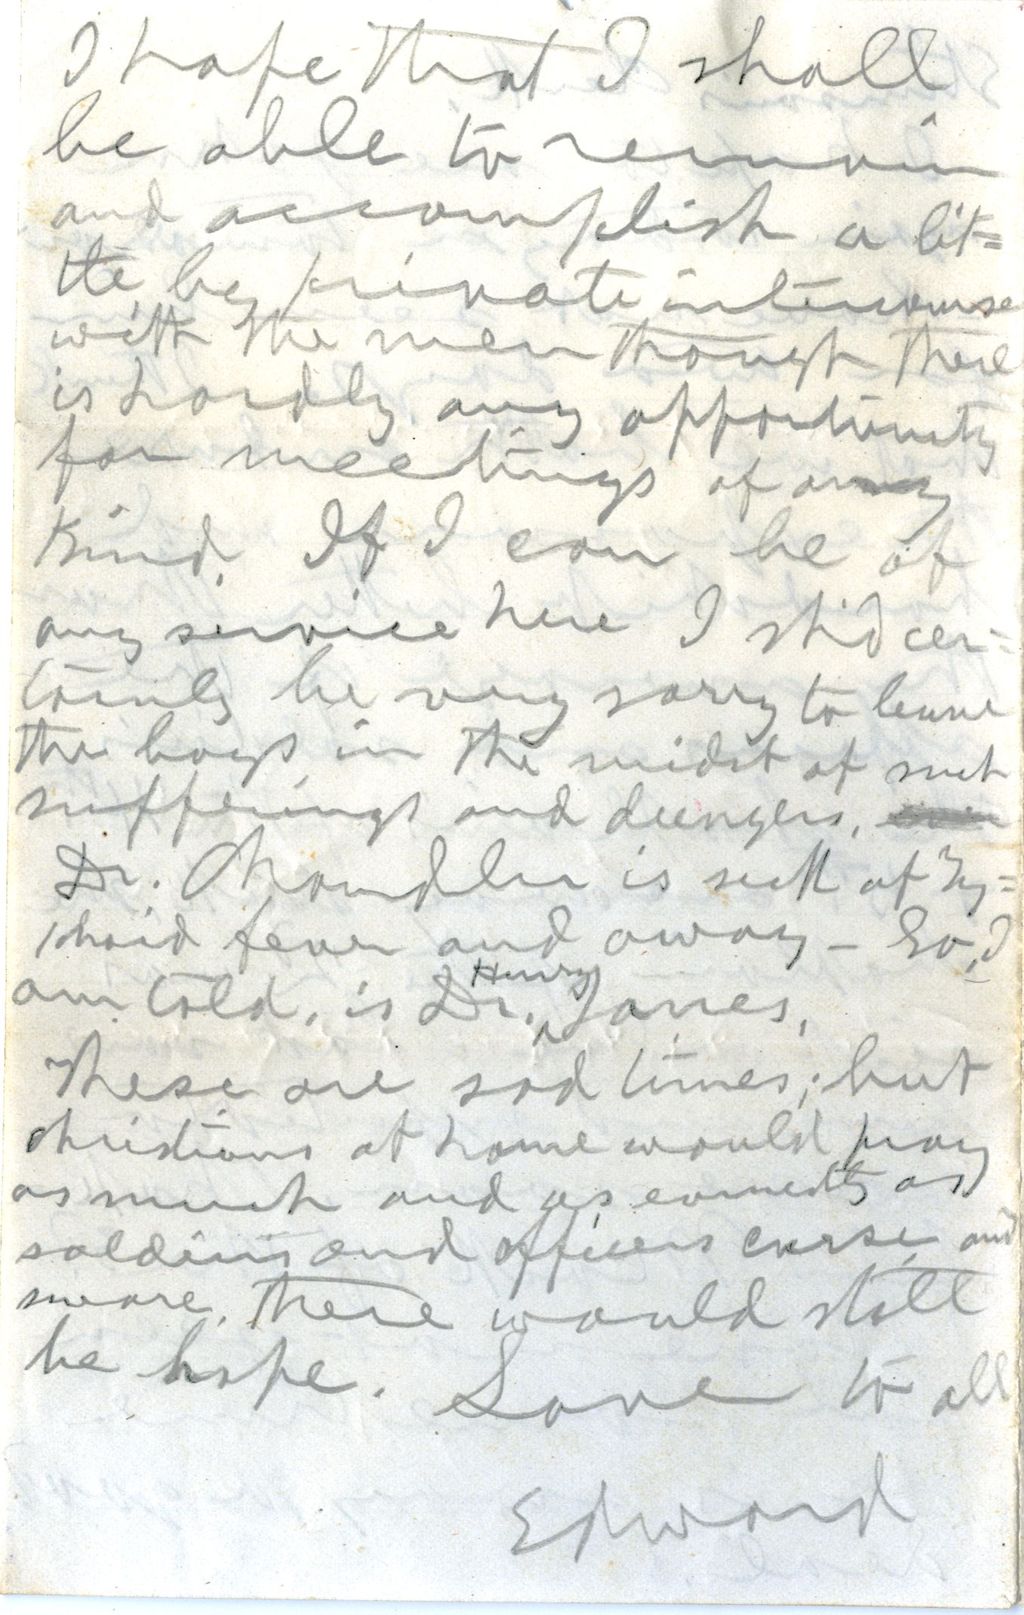 I hope that I shall
be able to remain
and accomplish a lit=
tle by private intercourse
with the men though there
is hardly any opportunity
for meetings of any
kind. If I can be of
any service here I sh'd cer=
tainly be very sorry to leave
the boys in the midst of such
sufferings and dangers.
Dr. Chandler is sick of Ty=
phoid fever and away – So, I
am told, is Dr. Henry Janes.
These are sad times; but
christians at home would pray
as much and as earnestly as
soldiers and officers curse and
sware, there would still
be hope. Love to all
Edward